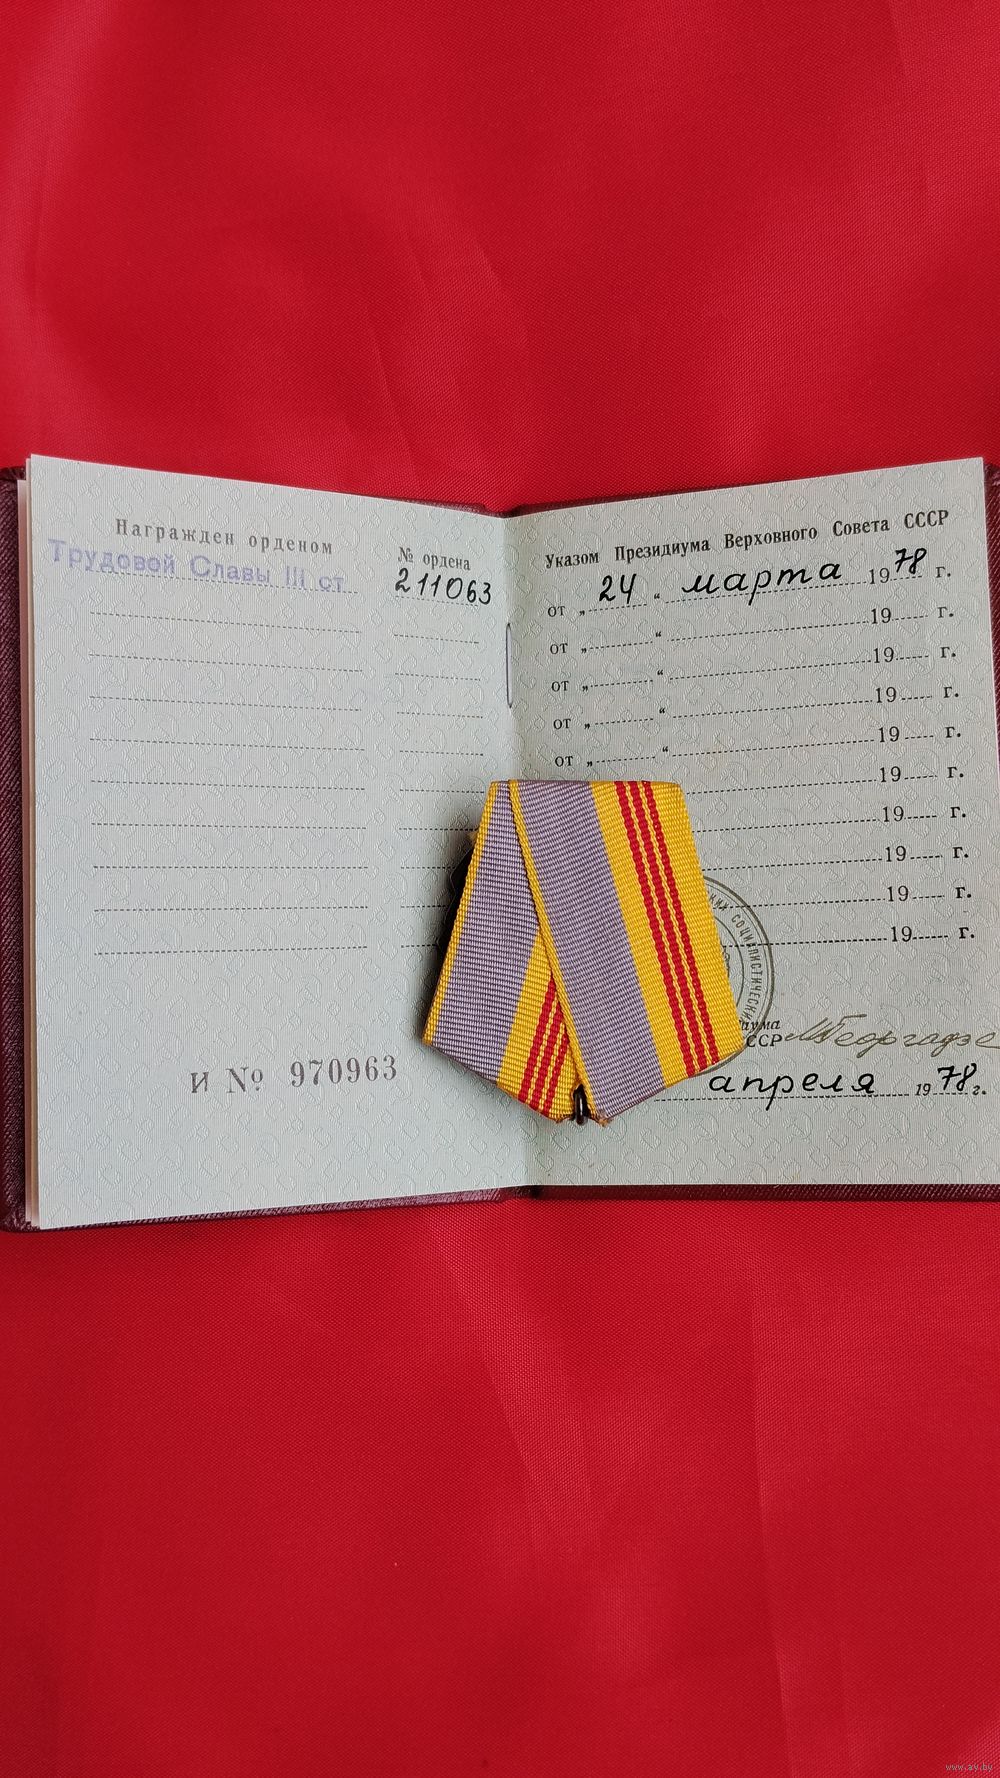 Награжден орденом
№ ордена
Трудовой Славы III ст.
211063
И № 970963
Указом Президиума Верховного Совета СССР
от „ 24 “ марта 1978 г.
от „ “ 19 г.
от „ “ 19 г.
от „ “ 19 г.
от „ “ 19 г.
19 г.
19 г.
19 г.
19 г.
19 г.
СОЦИАЛИСТИЧЕСКИХ
СССР МГеоргадзе
апреля 1978 г.
www.ay.by